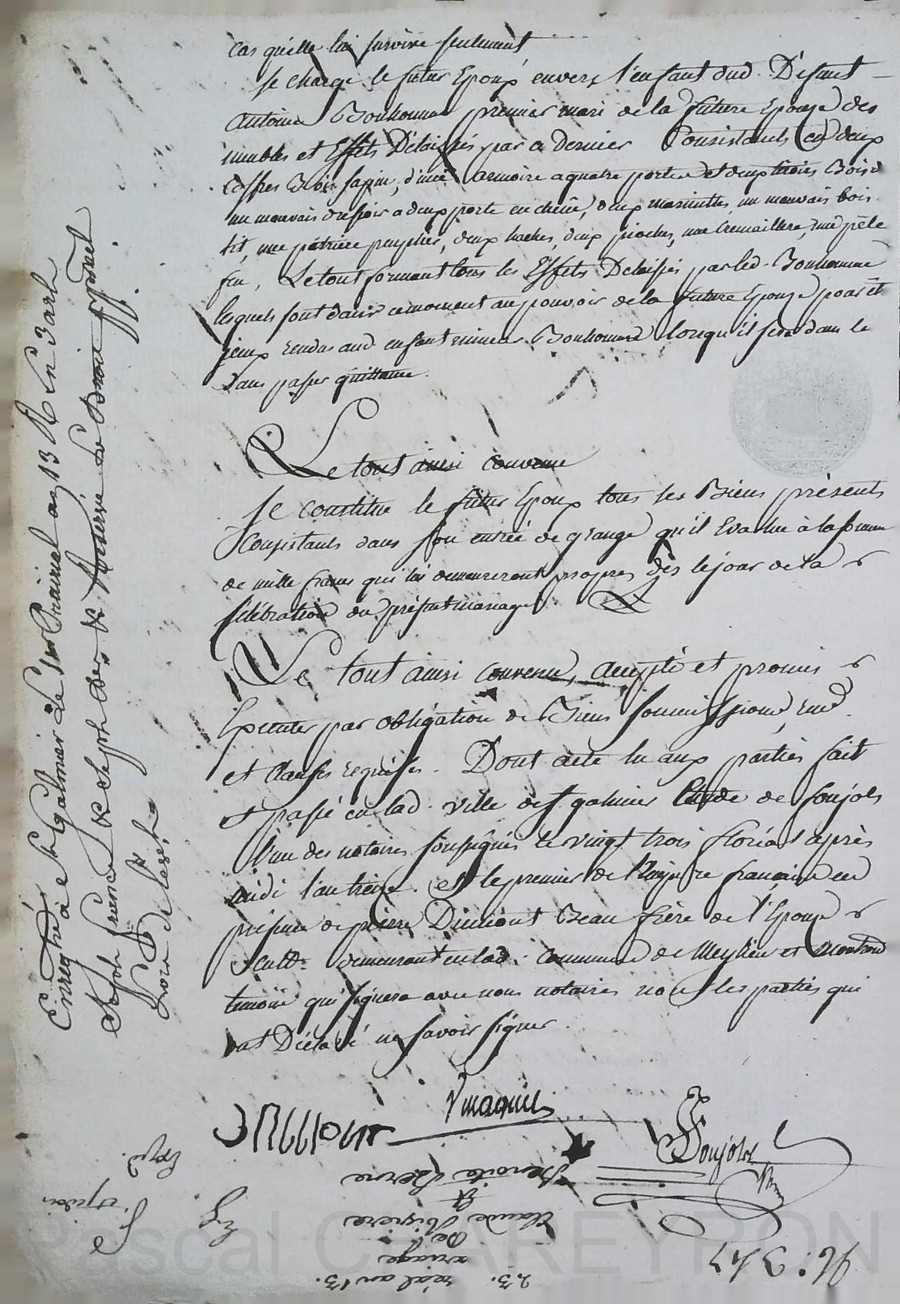 cas qu'elle lui survive seulement
se charge le futur Epoux envers l'enfant dud. Defunt
antoine Bonhomme premier mari de la future Epouse des
meubles et Effets Delaissés par ce dernier Consistants en deux
coffres Bois sapin, d'une armoire a quatre portes et deux tiroirs Bois
un mauvais dressoir a deux porte en chene, deux marmittes, un mauvais bois
lit, une pétrière, deux haches, deux pioches, une Cremaillere, une péle
feu, Le tout formant tous les Effets Delaissés par led. Bonhomme
lesquels sont dans ce moment au pouvoir de la future Epouse pour et
rendus aud enfant mineur Bonhomme lorsqu'il sera dans le
sans passer quittance.
Le tout ainsi convenu
Se constitue le futur Epoux tous les Biens présents
Consistants dans son entrée de grange qu'il Evalue à la somme
de mille francs qui lui demeureront propres dès le jour de la
celebration du présent mariage
Le tout ainsi convenu, accepté et promis
Executer par obligation de Biens soumissions, rend.
et clauses requises. Dont acte lu aux parties fait
et passé en lad. ville de St galmier Etude de Soujols
l'un des notaires soussignés le vingt trois floréal après
midi l'an treize et le premier de l'Empire français en
présence de pierre Dumont Beau frère de l'Epouse
cult. demeurant en lad. commune de Meylieu et Montrond
temoin qui signera avec nous notaires non les parties qui
ont Déclaré ne savoir signer.
Soujols
Enregistré à St Galmier le prairial an 13 R
Reçu
N°: 347
Benoite
Et
Claude
De
mariage
23. réal an 13.
Pascal CHAREYRON